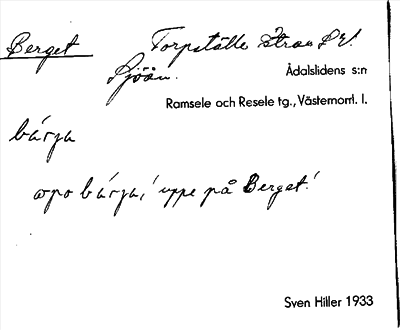 Berget Torpställe
Sjöån.
Ådalslidens s:n
Ramsele och Resele tg., Västernorrl. l.
bárja
opo bárja, ' uppe på Berget.'
Sven Hiller 1933